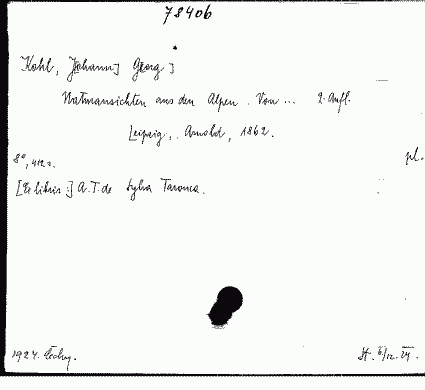 78406
Kohl, J[ohann] G[eorg]
Naturansichten aus den Alpen. Von ... 2. Aufl.
Leipzig, Arnold, 1862.
8°, 412 s. pl.
[Ex libris:] A.T. de Sylva Tarouca.
1924. St.